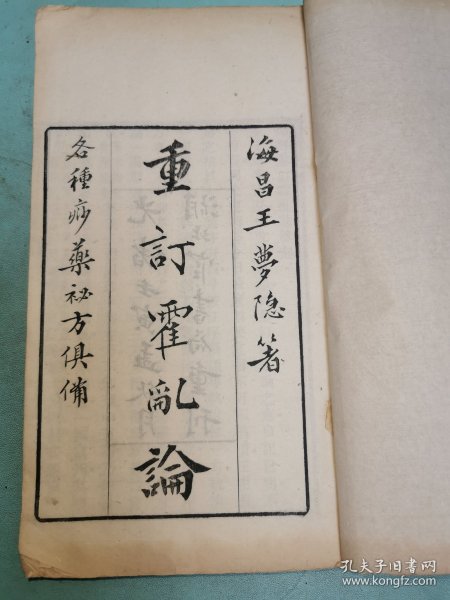 海昌王夢隱著
重訂霍亂論
各種痧藥祕方俱備
孔夫子旧书网
www.kongfz.com